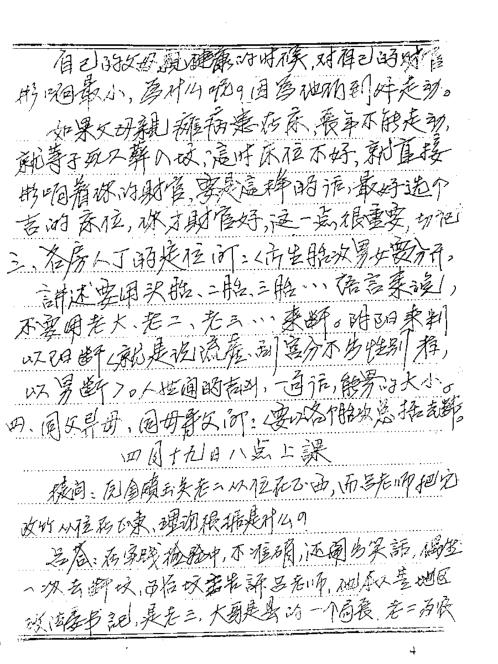 自己的父母親健康的时候,对自己的财官
影响最小,為什么呢?因為他们到处走动。
如果父母親瘫病患在床,長年不能走动,
就等于死人葬入坟,這时床位不好,就直接
影响着你的财官,要是這样的话,最好选个
吉的床位,你才财官好,这一点很重要,切记
三、各房人丁的定位所:〈所生胎次男女要分开,
講述要用头胎、二胎、三胎…语言来说,
不要用老大、老二、老三…来断。阴阳来判
以阳断〈就是说流産、刮宫分不出性别者,
以男断〉。人世间的吉凶,一通话,能男的大小。
四、同父异母、同母异父所:〈要以各个胎次总括去断。
四月十九日八点上課
猿问:凡金锁玉关老二从位在正西,而吕老师把它
改竹从位在正東,理论根据是什么?
吕答:在实践检验中,不准确,还闹出笑話,偶然
一次去断坟,西后坟主告訴吕老师,他家以某地区
政法委书记,是老三,大哥是县的一个局長,老二为农
4